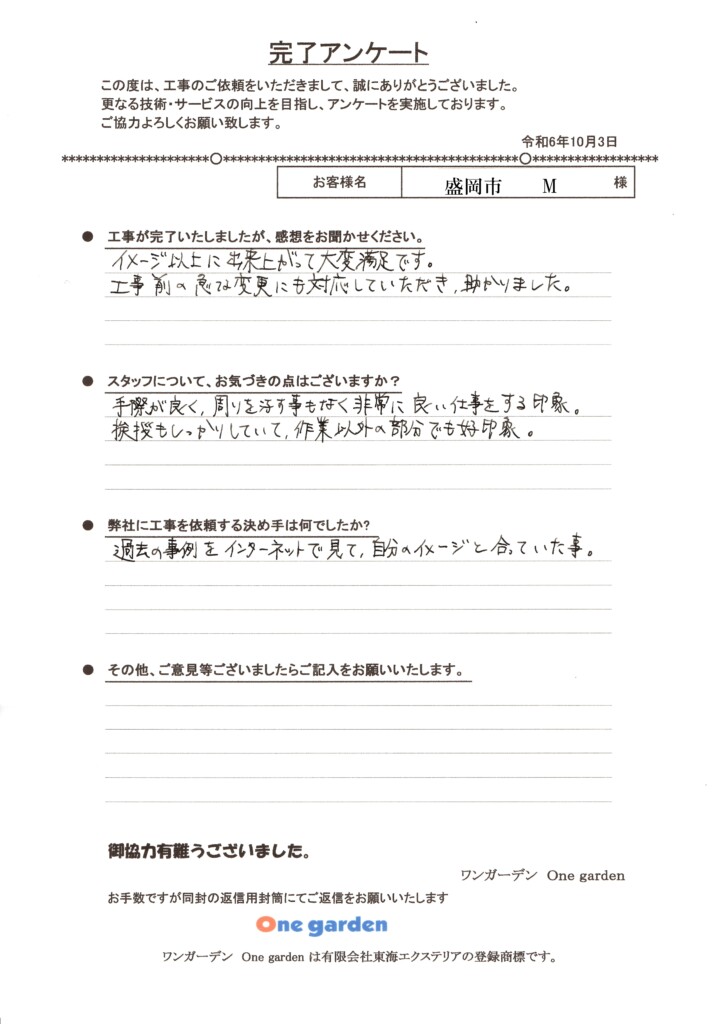 完了アンケート
この度は、工事のご依頼をいただきまして、誠にありがとうございました。
更なる技術・サービスの向上を目指し、アンケートを実施しております。
ご協力よろしくお願い致します。
令和6年10月3日
お客様名 盛岡市 M 様
● 工事が完了いたしましたが、感想をお聞かせください。
イメージ以上に出来上がって大変満足です。
工事前の急な変更にも対応していただき、助かりました。
● スタッフについて、お気づきの点はございますか？
手際が良く、周りを汚す事もなく非常に良い仕事をする印象。
挨拶もしっかりしていて、作業以外の部分でも好印象。
● 弊社に工事を依頼する決め手は何でしたか?
過去の事例をインターネットで見て、自分のイメージと合っていた事。
● その他、ご意見等ございましたらご記入をお願いいたします。
御協力有難うございました。
ワンガーデン One garden
お手数ですが同封の返信用封筒にてご返信をお願いいたします
One garden
ワンガーデン One garden は有限会社東海エクステリアの登録商標です。